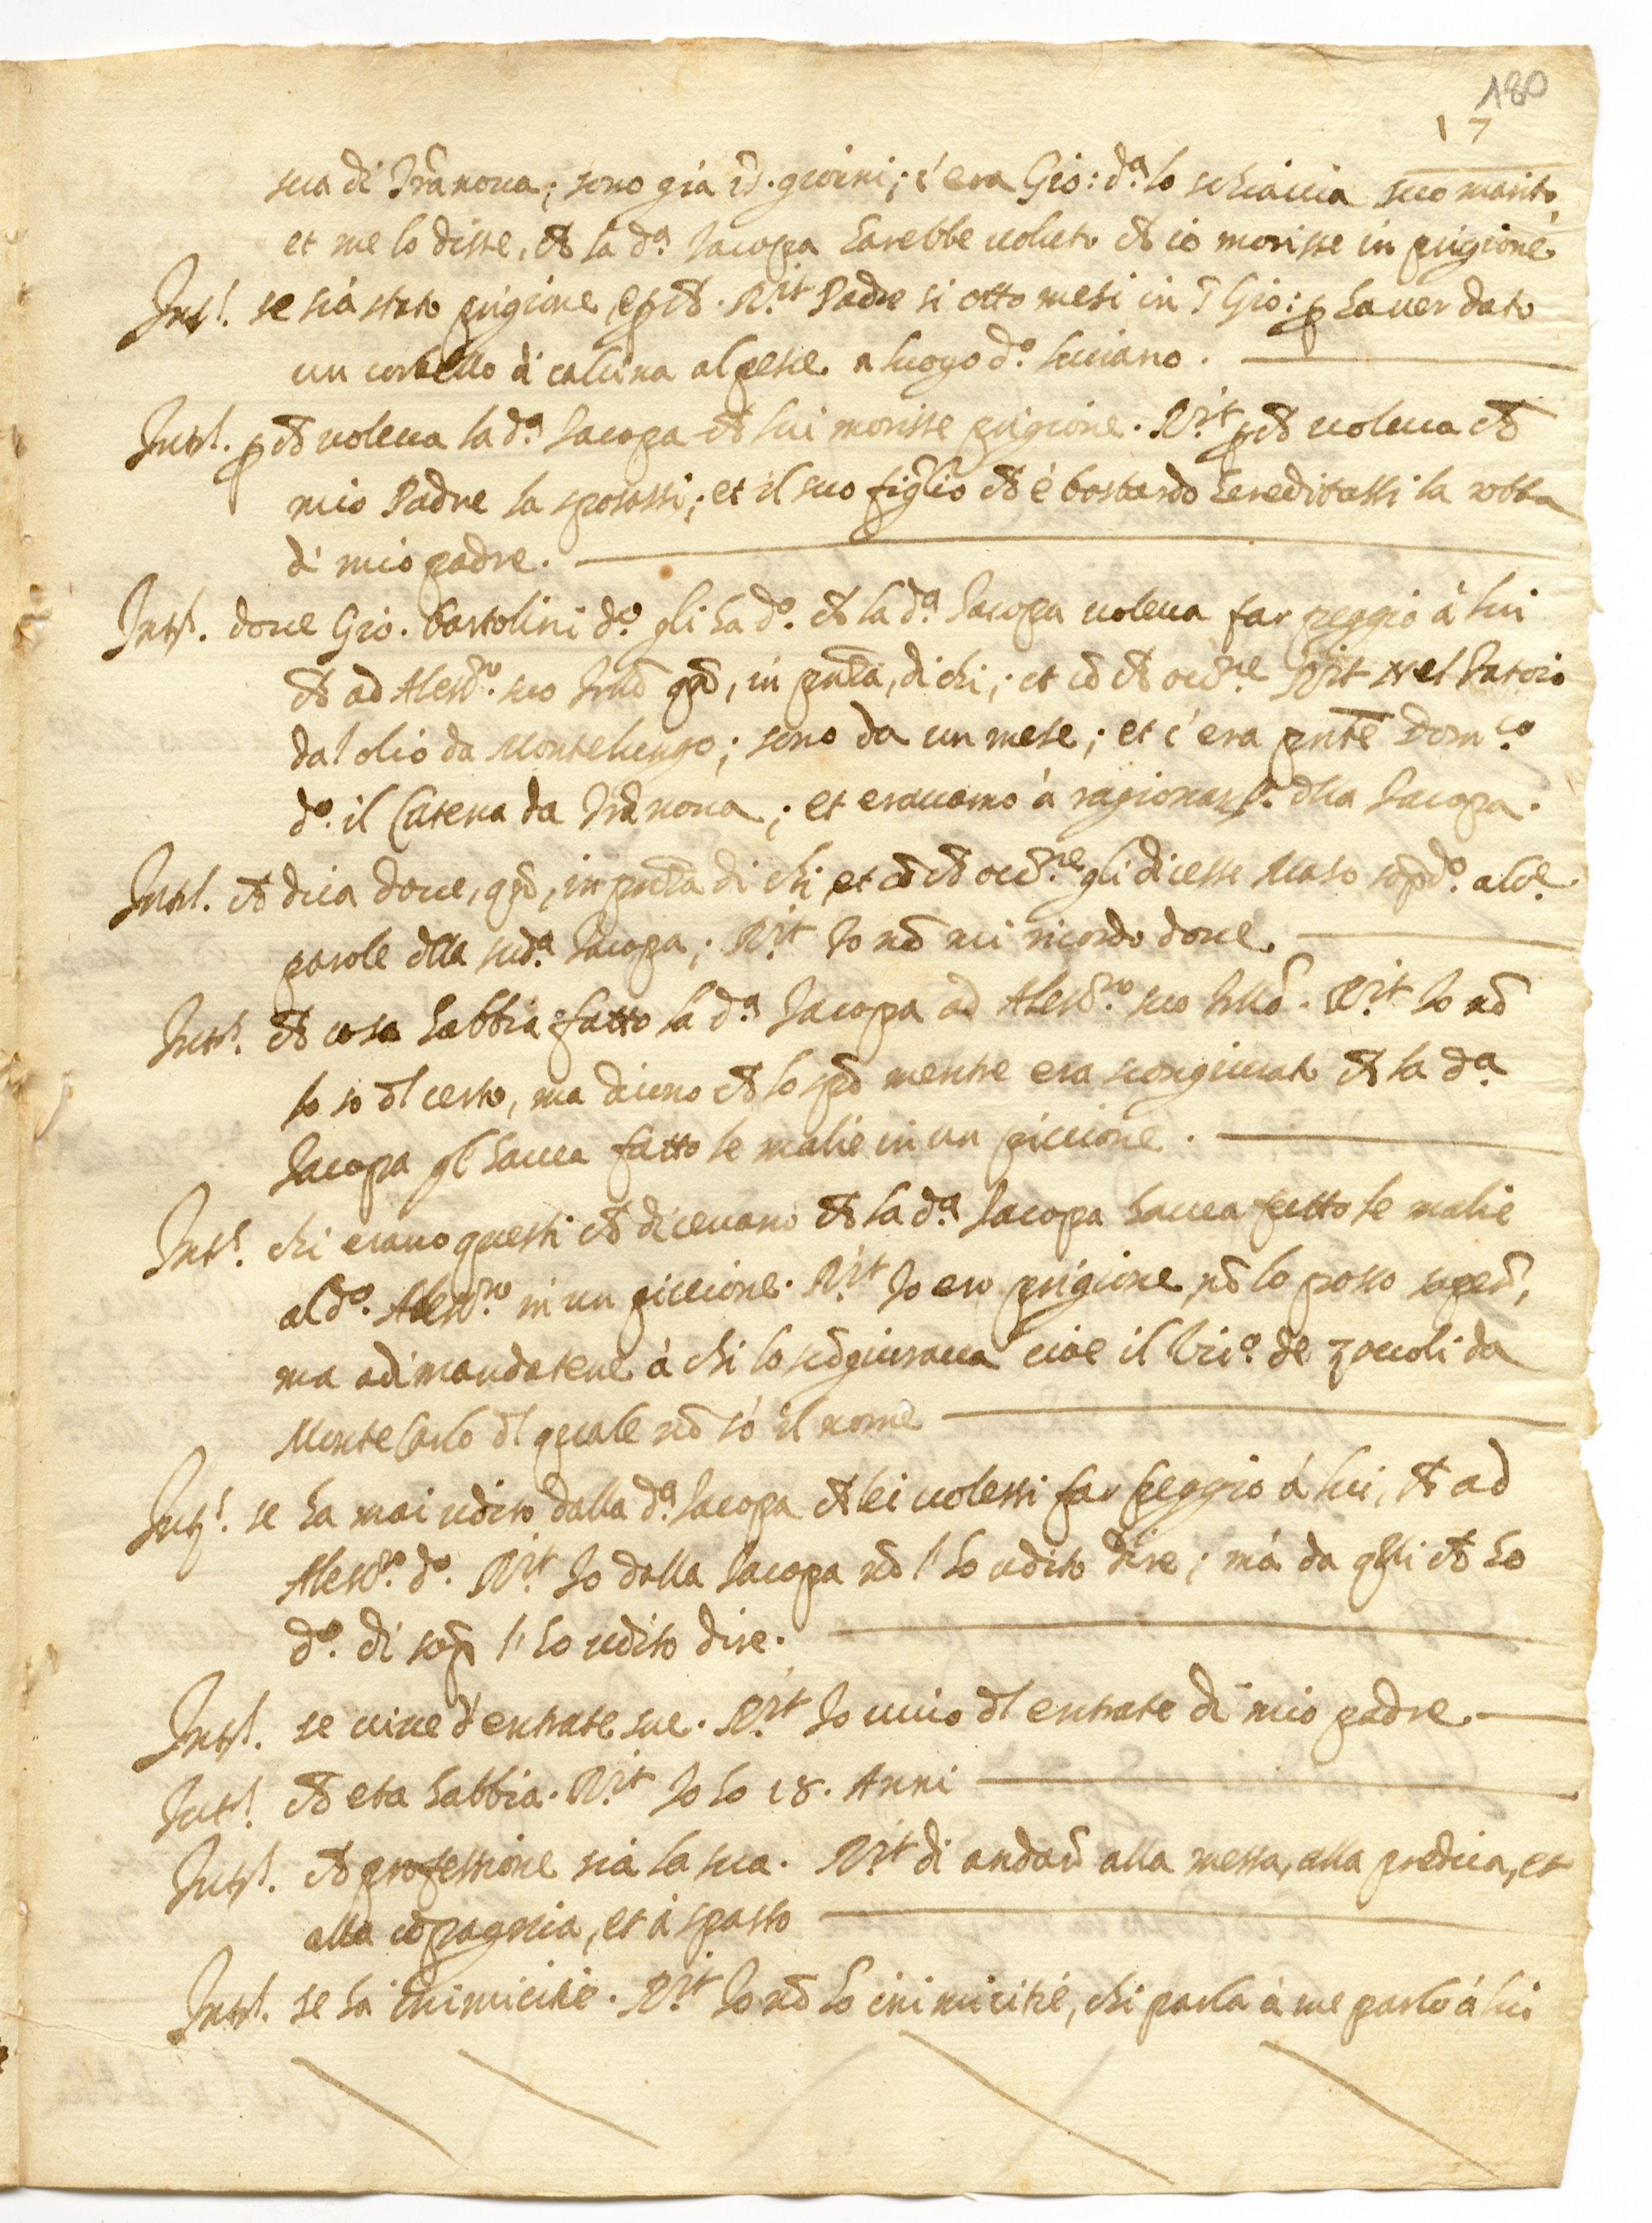 180
17
sua di Trãnoua; sono già 15. giorni; c'era Gio: d.ª lo schiaccia suo marito
et me lo disse, ch̃ la d.ª Iacopa harebbe uoluto ch̃ io morisse in prigione
Int.º se sia stato prigione, e p̱ ch̃. R.it Padre si otto mesi in S Gio: p̱ hauer dato
un corbello di calcina al pesce a luogo d.º Luciano.
Int.º p̱ ch̃ uoleua la d.ª Iacopa ch̃ lui morisse prigione. R.it p̱ch̃ uoleua ch̃
mio Padre la sposassi; et il suo figlio ch̃ é bastardo hereditassi la robba
di mio padre.
Int.º doue Gio. bartolini d.º gli ha d.º ch̃ la d.ª Iacopa uoleua far peggio à lui
ch̃ ad Aless.ro suo frẽllo qñ, in pñza, di chi; et cõ ch̃ occ.ne R.it nel fattoio
dal olio da Montelungo; sono da un mese; et c'era pñte Dom.co
d.º il Catena da Trãnoua; et erauamo à ragionar dlla Iacopa.
Int.º ch̃ dica doue, qñ, in pñza di chi, et cõ ch̃ occ.ne gli dicesse Maso sop.dº alc.e
parole dlla sud.ª Iacopa; R.it Io nõ mi ricordo doue.
Int.º ch̃ cosa habbia fatto la d.ª Iacopa ad Aless.ro suo frlló. R.it Io nõ
lo so dl certo, ma dicono ch̃ lo spõ mentre era scongiurato ch̃ la d.ª
Iacopa gl' hauea fatto le malie in un piccione.
Int.º chi erano questi ch̃ diceuano ch̃ la d.ª Iacopa hauea fatto le malie
al d.º Aless.ro in un piccione. R.it Io ero prigione, nõ lo posso saper̃,
ma adimandatene à chi lo scõgiuraua cioe il Vic.º de zoccoli da
MonteCarlo dl quale nõ só il nome
Int.º se ha mai udito dalla d.ª Iacopa ch̃ lei uolessi far peggio à lui, ch̃ ad
Aless.º d.º R.it Io dalla Iacopa nõ l'ho udito dire; mà da qlli ch̃ ho
d.º di sop̃ l'ho udito dire.
Int.º se uiue d'entrate sue. R.it Io uiuo dl entrate di mio padre
Int.º ch̃ eta habbia. R.it Io ho 18. Anni
Int.º ch̃ professione sia la sua. R.it di andar̃ alla messa, alla predica, et
alla cõpagnia, et à spasso
Int.º se ha inimicitie. R.it Io nõ ho inimicitie, chi parla à me parlo à lui